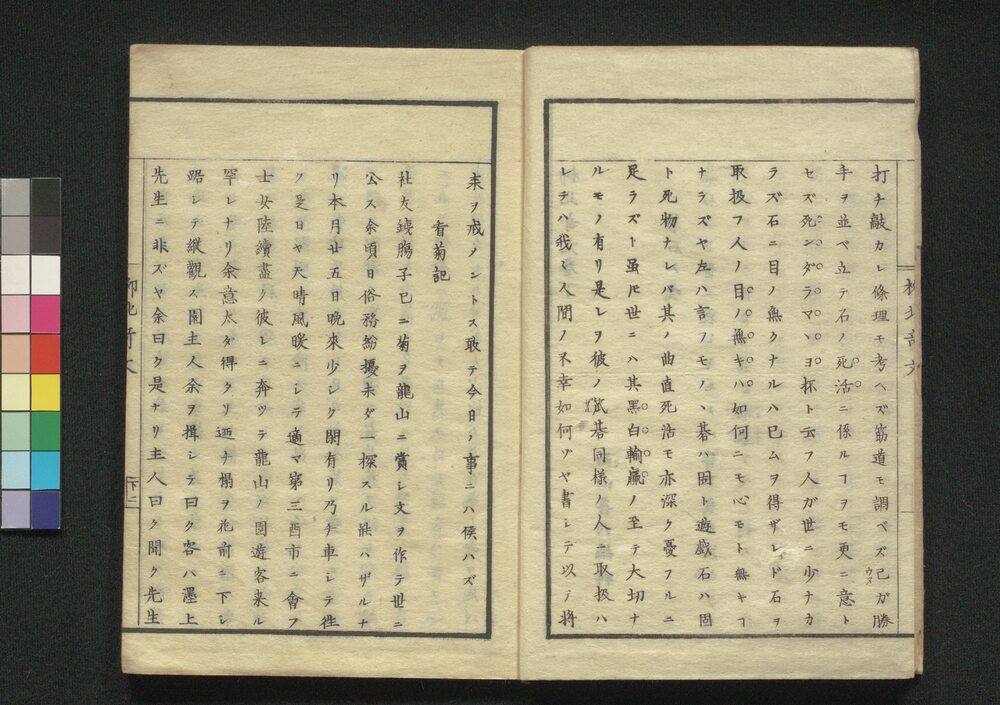 打チ敲カレ條理モ考ヘズ筋道モ調ベズ己ガ勝
手ヲ並ベ立テ石ノ死活ニ係ルヿヲモ更ニ意ト
セズ死ンダラマヽヨ抔ト云フ人ガ世ニ少ナカ
ラズ石ニ目ノ無クナルハ已ムヲ得ザレド石ヲ
取扱フ人ノ目ノ無キハ如何ニモ心モト無キヿ
ナラズヤ左ハ言フモノヽ碁ハ固ト遊戯石ハ固
ト死物ナレバ其ノ曲直死活モ亦深ク憂フルニ
足ラズト雖𪜈世ニハ其黒白輸贏ノ至テ大切ナ
ルモノ有リ是レヲ彼ノ碁同様ノ人ニ取扱ハ
レテハ我々人間ノ不幸如何ゾヤ書シテ以テ將
柳北奇文
來ヲ戒メントス敢テ今日ノ事ニハ候ハズ
看菊記
社友鏤膓子已ニ菊ヲ龍山ニ賞レ文ヲ作テ世ニ
公ス余頃日俗務紛擾未ダ一探スル能ハザルナ
リ本月廿五日晩來少シク閑有リ乃チ車シテ徃
ク是日ヤ天時風暖ニシテ適マ第三酉市ニ會フ
士女陸續盡ク彼レニ奔ツテ龍山ノ園遊客来ル
罕レナリ余意太ダ得タリ迺チ榻ヲ花前ニ下シ
踞シテ縦觀ス園主人余ヲ揖シテ曰ク客ハ濹上
先生ニ非ズヤ余曰ク是ナリ主人曰ク聞ク先生
柳北奇文
下二